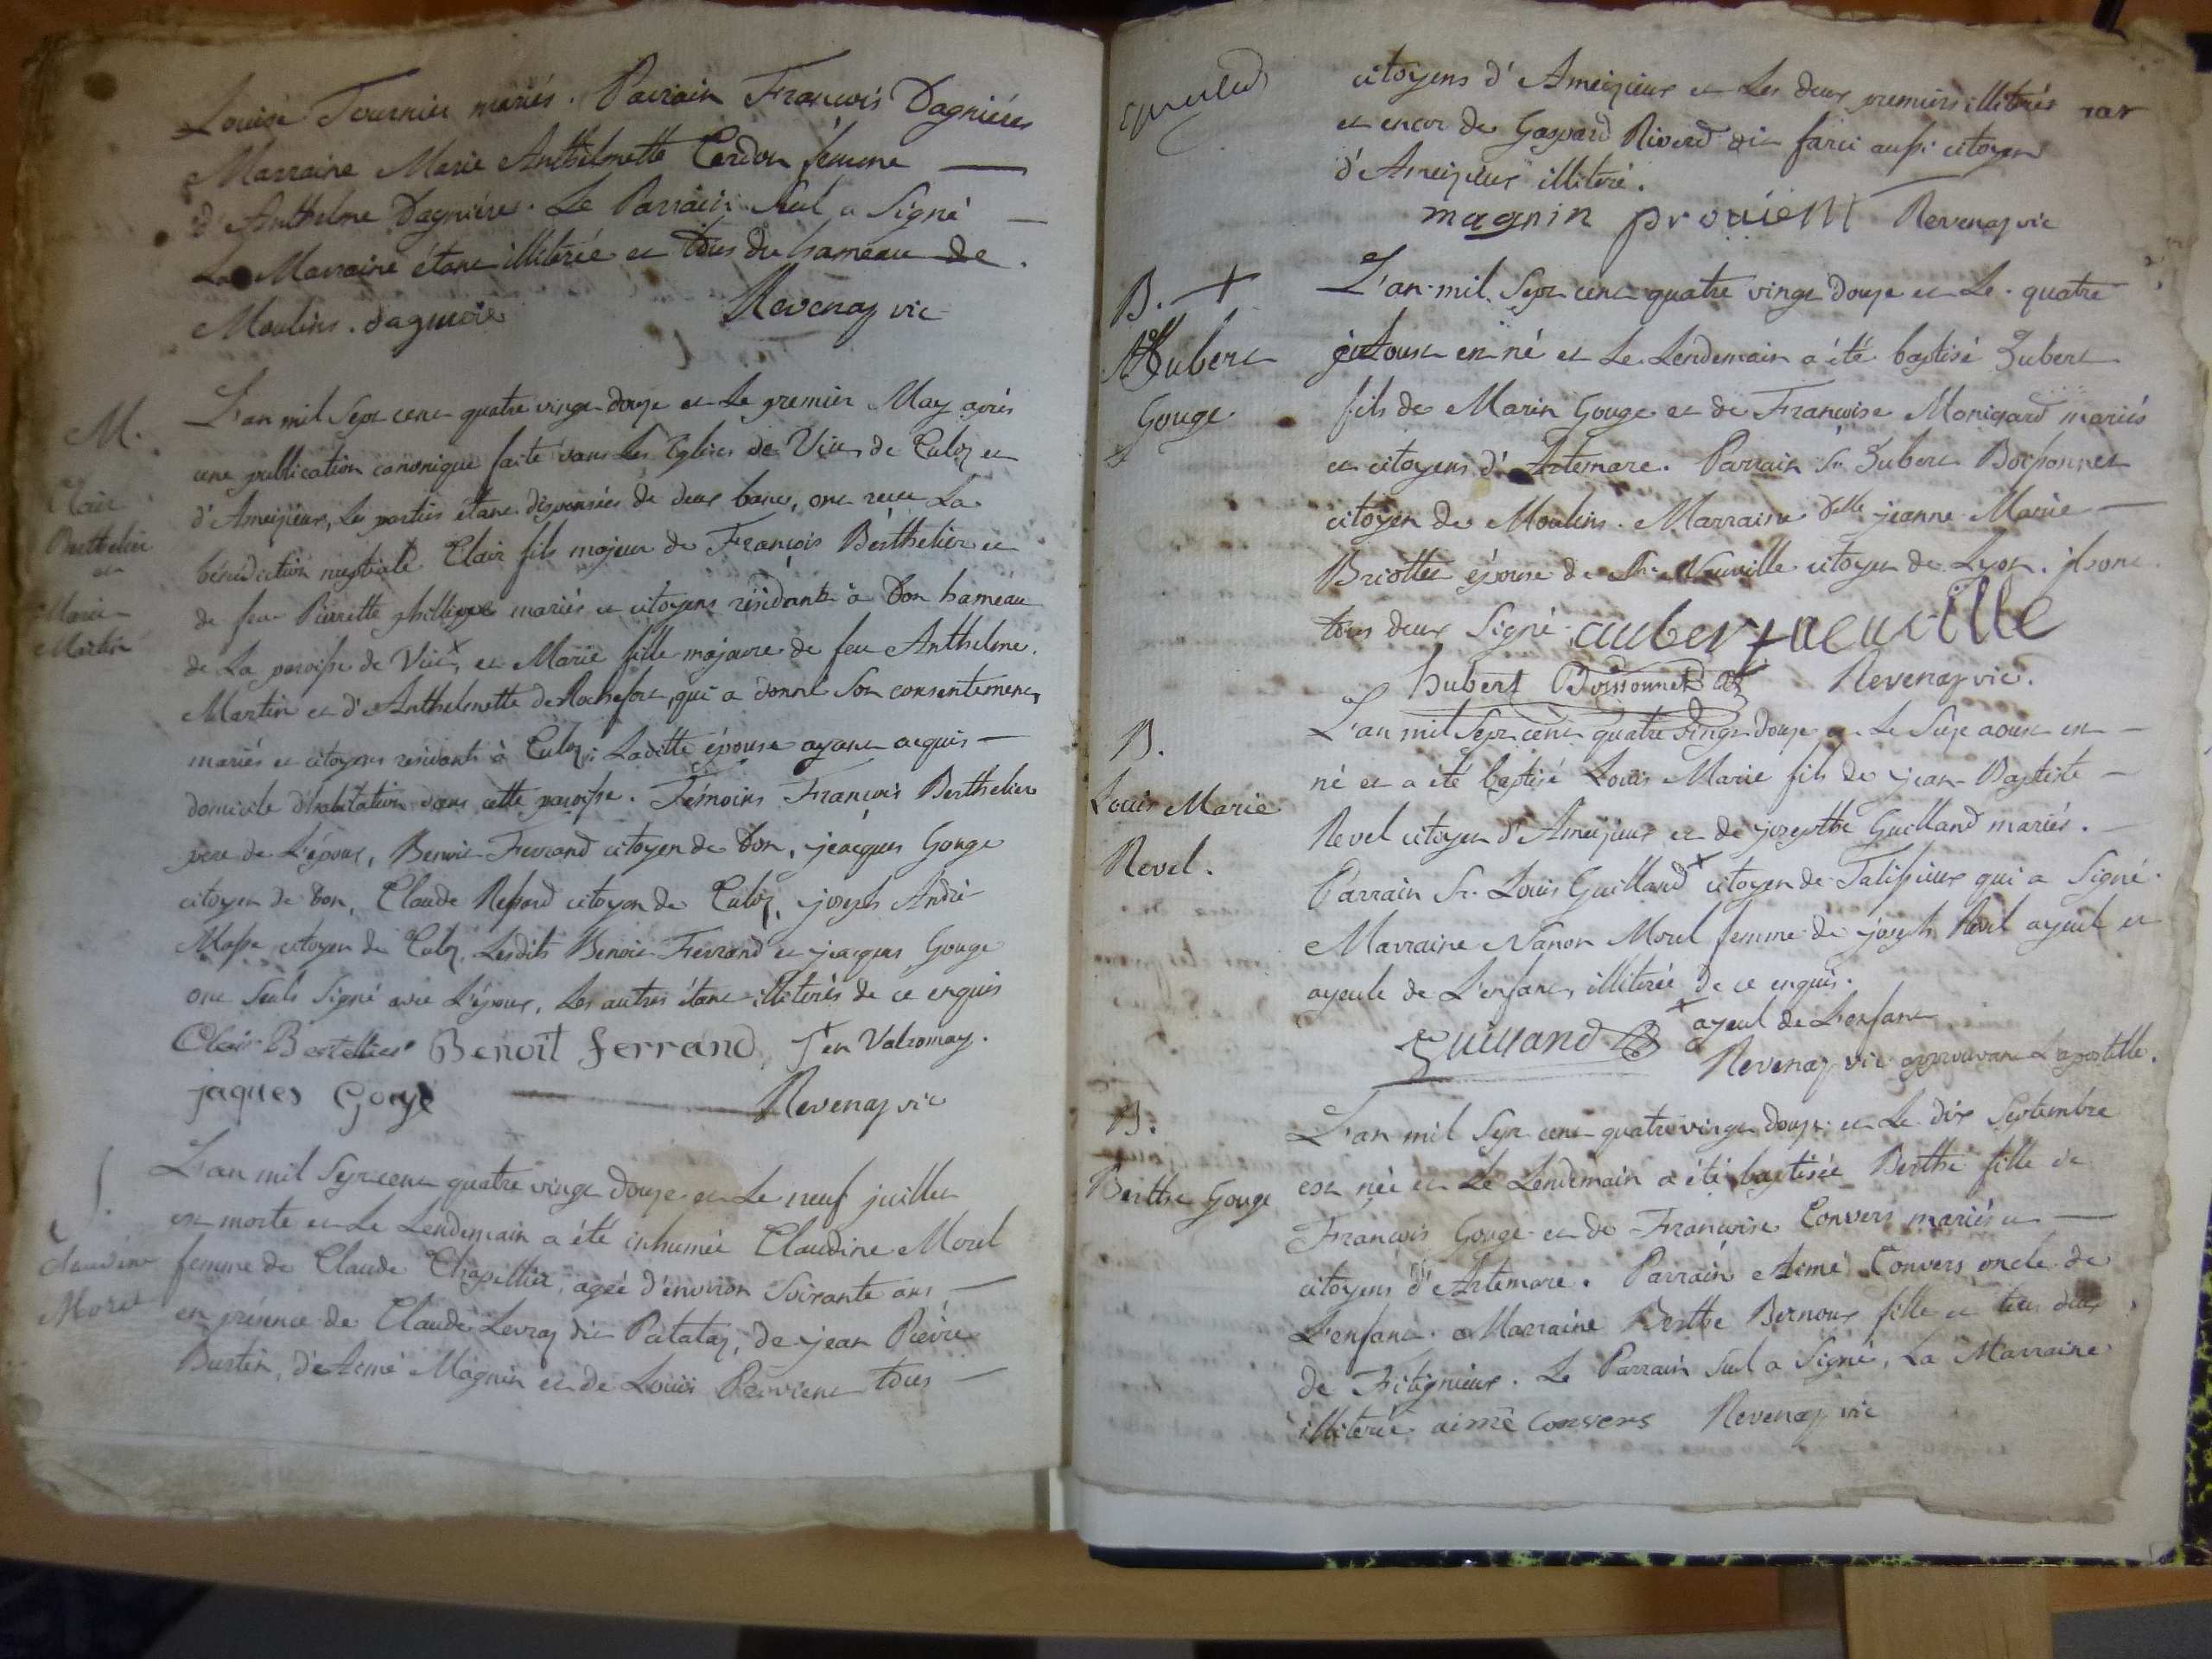 Louise Tournier mariés. Parrain François Dagniéres
Marraine Marie Anthelmette Cerdon femme
d'Anthelme Dagniéres. Le Parrain seul a signé
La Marraine étant illiterée et tous du hameau de
Moulins. dagniere Revenaz vic
M.
Clair
Berthelier
et
Marie
Martin
L'an mil sept cent quatre vingt douze et Le premier May après
une publication canonique faite dans Les Eglises de Vieu de Culoz et
d'Ameizieux, Les parties étant dispensées de deux bancs, ont recu La
bénédiction nuptiale Clair fils majeur de François Berthelier et
de feue Pierrette phillippe mariés et citoyens résidants à Don hameau
de La paroisse de Vieu, et Marie fille majeure de feu Anthelme
Martin et d'Anthelmette de Rochefort, qui a donné son consentement,
mariés et citoyens residants à Culoz; Laditte épouse ayant acquis
domicile d'habitation dans cette paroisse. Témoins François Berthelier
pere de L'époux, Benoit Ferrand citoyen de Don, jeacques Gouge
citoyen de Don, Claude citoyen de Culoz, joseph André
Masse citoyen de Culoz. Lesdits Benoit Ferrand et jacques Gouge
ont seuls signé avec L'époux, Les autres étant illiterés de ce enquis
Clair Bertellier Benoit ferrand + en Valromay.
jaques Gouje Revenaz vic
S.
Claudine
Morel
L'an mil sept cent quatre vingt douze et Le neuf juillet
est morte et Le Lendemain a été inhumée Claudine Morel
femme de Claude Chapellier, agée d'environ soixante ans
en présence de Claude Levraz dit Patataz, de jean Pierre
Burtin, d'Aimé Magnin et de Louis Provient tous
citoyens d'Ameizieux et Les deux premiers illiterés
et encor de Gaspard Riverd dit farci aussi citoyen
d'Ameizieux illiteré.
magnin provient Revenaz vic
B. +
Hubert
Gouge
L'an mil sept cent quatre vingt douze et Le quatre
aoust est né et Le Lendemain a été baptisé hubert
fils de Marin Gouge et de Françoise Monigard mariés
et citoyens d'Artemare. Parrain Sr. hubert Boissonnet
citoyen de Moulins. Marraine Delle jeanne Marie
Briottet épouse de Neuville citoyen de Lyon. ils ont
tous deux signé neuville
hubert Boissonnet Revenaz vic.
B.
Louis Marie
Revel.
L'an mil sept cent quatre vingt douze et Le sept aoust est
né et a été baptisé Louis Marie fils de jean Baptiste
Revel citoyen d'Ameizieux et de josepthe Guilland mariés.
Parrain Sr. Louis Guilland + citoyen de Talissieux qui a signé.
Marraine Nanon Morel femme de joseph Revel ayeul et
ayeule de L'enfant, illiterée de ce enquis.
Guilland + ayeul de L'enfant
Revenaz vic approuvant L'apostille.
B.
Berthe Gouge
L'an mil sept cent quatre vingt douze et Le dix septembre
est née et Le Lendemain a été baptisée Berthe fille de
François Gouge et de Françoise Convers mariés et
citoyens d'Artemare. Parrain Aimé Convers oncle de
L'enfant. Marraine Berthe Bernoux fille et tous deux
de Fitignieux. Le Parrain seul a signé, La Marraine
illiterée aimé convers Revenaz vic